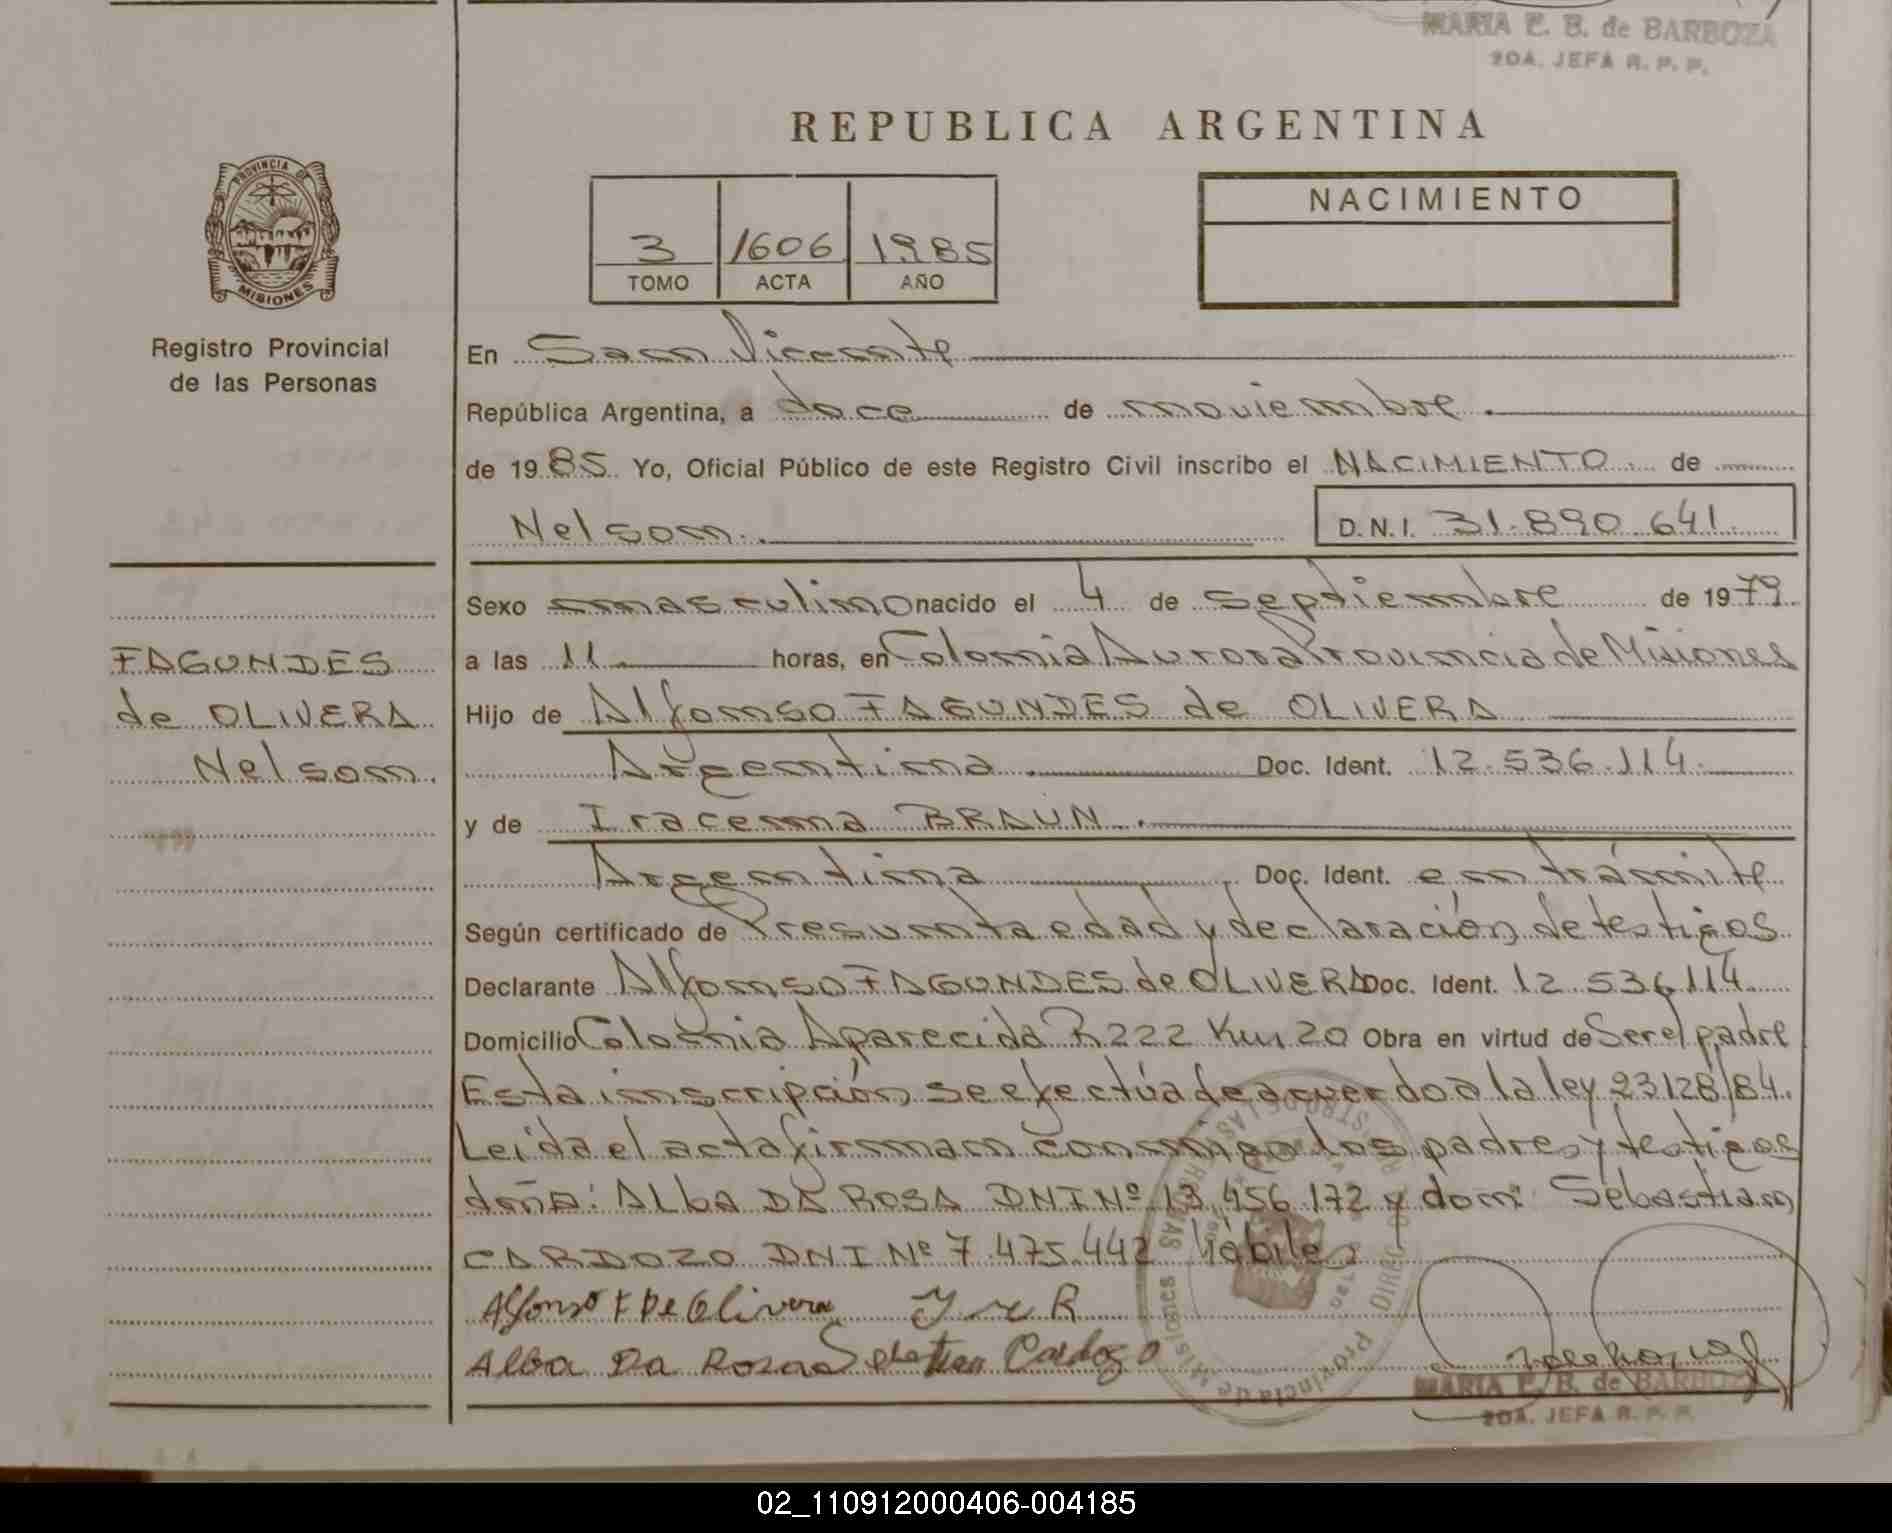 MARIA E. B. de BARBOZA
2DA. JEFA R. P. P.
REPUBLICA ARGENTINA
PROVINCIA DE
MISIONES
3 1606 1985
TOMO ACTA AÑO
NACIMIENTO
Registro Provincial
de las Personas
En San Vicente
República Argentina, a doce de noviembre.
de 1985 Yo, Oficial Público de este Registro Civil inscribo el NACIMIENTO de
Nelson. D.N.I. 31.890.641
FAGUNDES
de OLIVERA
Nelson.
Sexo masculino nacido el 4 de septiembre de 1979
a las 11 horas, en Colonia Aurora Provincia de Misiones
Hijo de Alfonso FAGUNDES de OLIVERA
Argentina Doc. Ident. 12.536.114.
y de Iracema BRAUN.
Argentina Doc. Ident. en trámite
Según certificado de Presunta edad y declaración de testigos
Declarante Alfonso FAGUNDES de OLIVERA Doc. Ident. 12.536.114
Domicilio Colonia Aparecida R222 Km 20 Obra en virtud de Ser el padre
Esta inscripción se efectúa de acuerdo a la ley 23128/84.
Leída el acta firman conmigo los padres y testigos
doña: ALBA DA ROSA DNI Nº 13.456.172 y don: Sebastian
CARDOZO DNI Nº 7.475.442 hábiles
Alfonso F De Olivera
Alba Da Rosa Sebastian Cardozo
Provincia de Misiones
MARIA E. B. de BARBOZA
2DA. JEFA R. P. P.
02_110912000406-004185